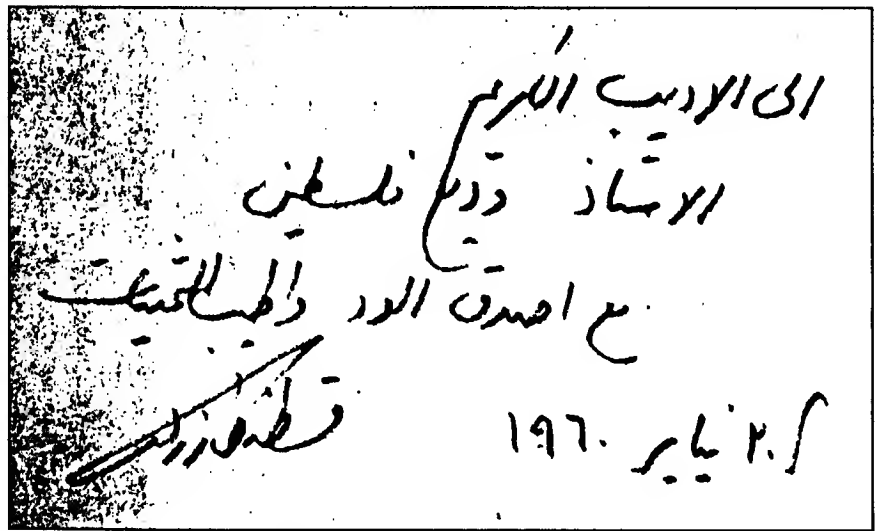 الى الاديب الكريم
الاستاذ وديع فلسطين
مع اصدق الود واطيب التحيات
٢٠ يناير ١٩٦٠